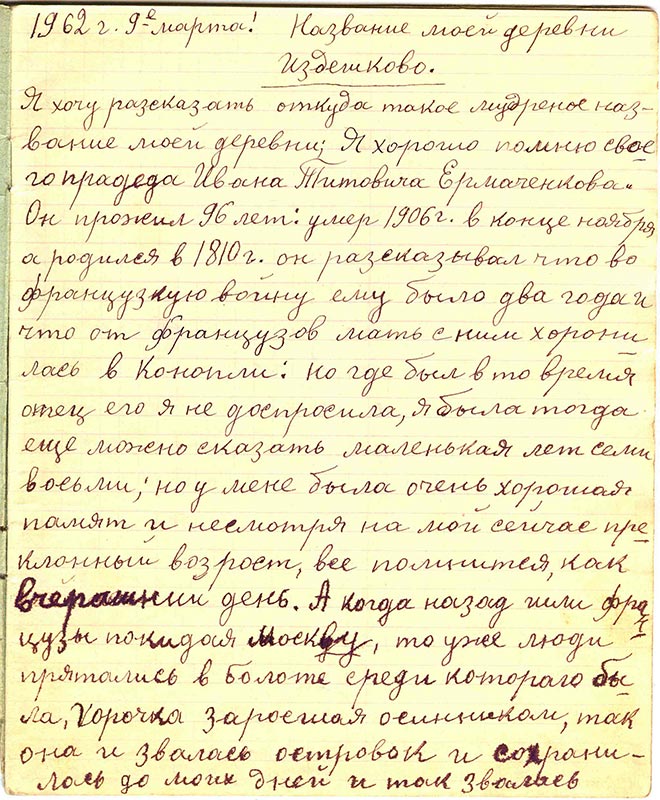 1962 г. 9е марта! Название моей деревни
Издешково.
Я хочу разсказать откуда такое мудреное наз-
вание моей деревни; Я хорошо помню свое
го прадеда Ивана Титовича Ермаченкова.
Он прожил 96 лет: умер 1906 г. в конце ноября
а родился в 1810 г. он разсказывал что во
французкую войну ему было два года и
что от французов мать с ним хорони
лась в Конопли: но где был в то время
отец его я не доспросила, я была тогда
еще можно сказать маленькая лет семи
восьми; но у мене была очень хорошая
памят и несмотря на мой сейчас пре
клонный возрост, все помнится, как
вчерашнии день. А когда назад шли фран
цузы покидая Москву, то уже люди
прятались в болоте среди котораго бы
ла, горочка заросшая осинником, так
она и звалась островок и сохрани-
лось до моих дней и так звалась